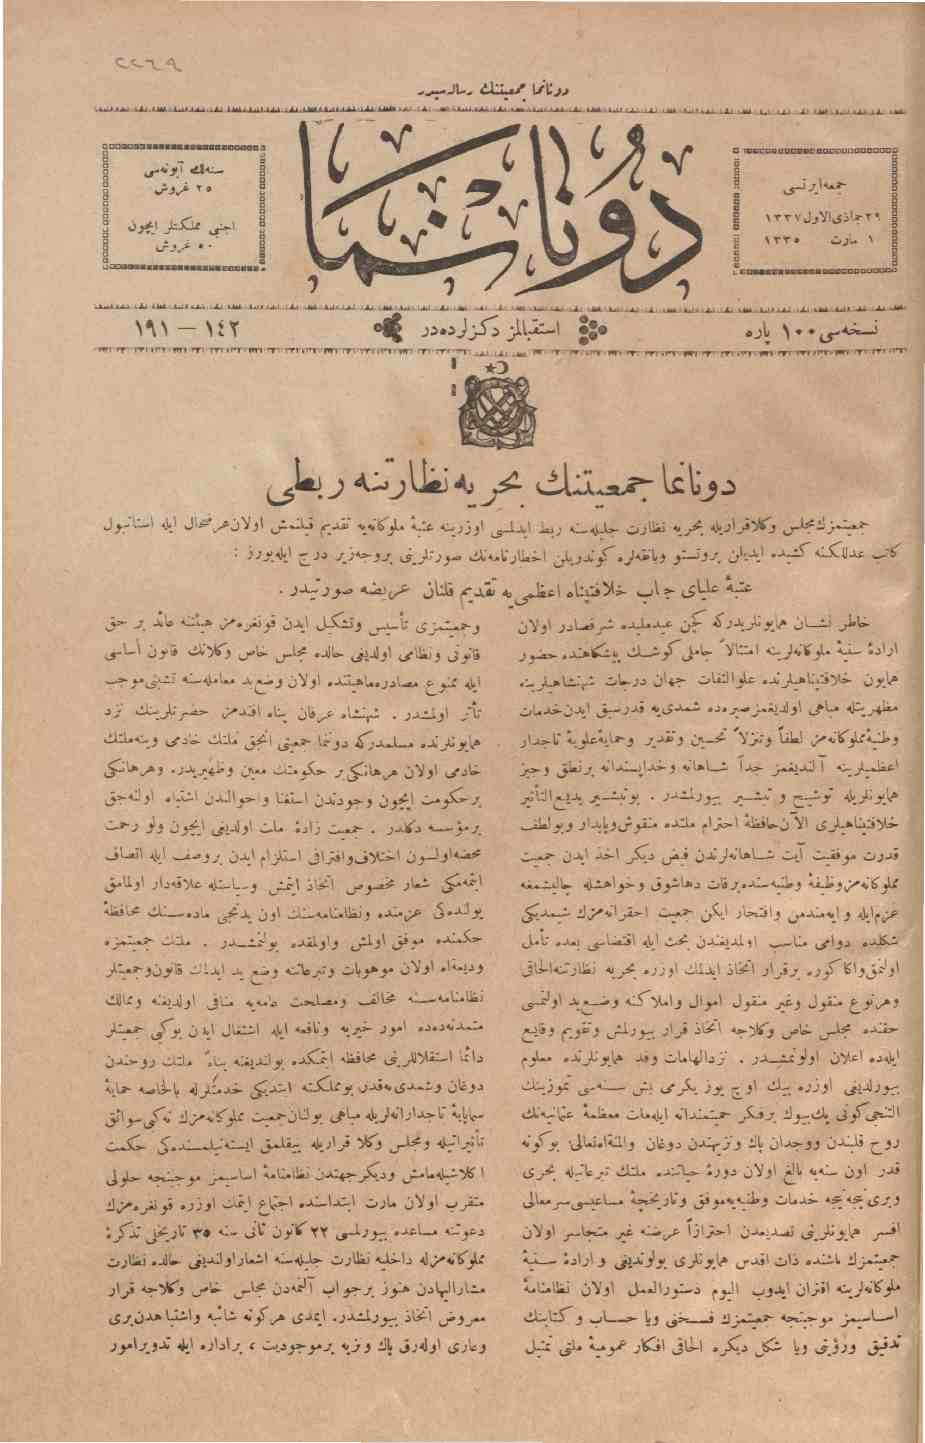 ٢٢٦٩
دونانما جمعیتنك رساله‌سیدر
جمعه ایرتسی
٢٩ جماذی الاول ١٣٣٧
١ مارت ١٣٣٥
دوناىنما
سنه‌لك آبونه‌سی
٢٥ غروش
اجنبی مملکتلر ایچون
٥٠ غروش
نسخه‌سی ١٠٠ پاره
استقبالمز دکزلرده‌در
١٤٢ — ١٩١
دونانما جمعیتنك بحریه نظارتنه ربطی
جمعیتمزك مجلس وکلا قراریله بحریه نظارت جلیله‌سنه ربط ایدلمسی اوزرینه عتبۀ ملوکانه‌یه تقدیم قیلنمش اولان عرضحال ایله استانبول
کاتب عدللکنه کشیده ایدیلن پروتستو وبانقه‌لره کوندریلن اخطارنامه‌نك صورتلرینی بروجه‌زیر درج ایله‌یورز :
عتبۀ علیای جناب خلافتپناه اعظمی‌یه تقدیم قلنان عریضه صورتیدر .
خاطر نشان همایونلریدرکه کچن عیدملیده شرفصادر اولان
ارادۀ سنیۀ ملوکانه‌لرینه امتثالاً جاملی کوشك پیشکاهنده حضور
همایون خلافتپناهیلرنده علوالتفات جهان درجات شهنشاهیلرینه
مظهریتله مباهی اولدیغمز صره‌ده شمدی‌یه قدر سبق ایدن خدمات
وطنیۀ مملوکانه‌مز لطفاً وتنزلاً تحسین وتقدیر وحمایۀ علویۀ تاجدار
اعظمیلرینه آلندیغمز جداً شاهانه وخداپسندانه برنطق وجیز
همایونلریله توشیح و تبشیر بیورلمشدر . بوتبشیر بدیع التأثیر
خلافتپناهیلری الآن حافظۀ احترام ملتده منقوش وپایدار وبولطف
قدرت موفقیت آیت شاهانه‌لرندن فیض دیکر اخذ ایدن جمعیت
مملوکانه‌مز وظیفۀ وطنیه‌سنده برقات دهاشوق وخواهشله چالیشمغه
عزم ایله وایه‌مندمن وافتخار ایکن جمعیت احقرانه‌مزك شیمدیکی
شکلده دوامی مناسب اولمدیغندن بحث ایله اقتضاسی بعده تأمل
اولنمق واکا کوره برقرار اتخاذ ایدلمك اوزره بحریه نظارتنه الحاقی
وهرنوع منقول وغیر منقول اموال واملاکنه وضع ید اولنمسی
حقنده مجلس خاص وکلاجه اتخاذ قرار بیورلمش وتقویم وقایع
ایله‌ده اعلان اولونمشدر . نزدالهامات وفد همایونلرنده معلوم
بیورلدیغی اوزره بیك اوچ یوز یکرمی بش سنه‌سی تموزینك
التنجی کونی پك بیوك برفکر حمیتمندانه ایله ملت معظمۀ عثمانیه‌نك
روح قلبندن ووجدان پاك ونزیهندن دوغان والمنة لله تعالی بوکونه
قدر اون سنه‌یه بالغ اولان دورۀ حیاتنده ملتك تبرعاتیله بحری
وبری نیجه نیجه خدمات وطنیه‌یه موفق وتاریخچۀ مساعیسی سرمعالی
افسر همایونلرینی تصدیعدن احترازاً عرضنه غیر متجاسر اولان
جمعیتمزك باشنده ذات اقدس همایونلری بولوندیغی و ارادۀ سنیۀ
ملوکانه‌لرینه اقتران ایدوب الیوم دستورالعمل اولان نظامنامۀ
اساسیمز موجبنجه جمعیتمزك فسخنی ویا حساب و کتابنك
تدقیق ورؤیتی ویا شکل دیکره الحاقی افکار عمومیۀ ملتی تمثیل
وجمعیتمزی تأسیس وتشکیل ایدن قونغره‌مز هیئتنه عائد بر حق
قانونی ونظامی اولدیغی حالده مجلس خاص وکلانك قانون اساسی
ایله ممنوع مصادره ماهیتنده اولان وضع ید معامله‌سنه تشبثی موجب
تأثر اولمشدر . شهنشاه عرفان پناه افندمز حضرتلرینك نزد
همایونلرنده مسلمدرکه دوننما جمعیتی انجق ملتك خادمی وینه ملتك
خادمی اولان هرهانکی بر حکومتك معین وظهیریدر. وهرهانکی
برحکومت ایچون وجودندن استغنا واحوالندن اشتباه اولنه‌جق
برمؤسسه دکلدر . جمعیت زادۀ ملت اولدیغی ایچون ولو رحمت
محضه اولسون اختلاف وافتراقی استلزام ایدن بروصف ایله اتصاف
ایتمه‌مکی شعار مخصوص اتخاذ ایتمش وسیاستله علاقه‌دار اولمامق
یولنده‌کی عزمنده ونظامنامه‌سنك اون یدنجی ماده‌سنك محافظۀ
حکمنده موفق اولمش واولمقده بولنمشدر . ملتك جمعیتمزه
ودیعه‌اه اولان موهوبات وتبرعاتنه وضع ید ایدلمك قانون وجمعیتلر
نظامنامه‌سنه مخالف ومصلحت عامه‌یه منافی اولدیغنه وممالك
متمدنه‌ده‌ده امور خیریه ونافعه ایله اشتغال ایدن بوکبی جمعیتلر
دائما استقلاللرینی محافظه ایتمکده بولندیغنه بناءً ملتك روحندن
دوغان وشمدی‌یه قدر بومملکته ایتدیکی خدمتلرله بالخاصه حمایۀ
سمایۀ تاجدارانه‌لریله مباهی بولنان جمعیت مملوکانه‌مزك نه‌کی سوائق
تأثیراتیله ومجلس وکلا قراریله ییقلمق ایستنیلمسنده‌کی حکمت
اکلاشیله‌مامش ودیکر جهتدن نظامنامۀ اساسیمز موجبنجه حلولی
متقرب اولان مارت ابتداسنده اجتماع ایتمك اوزره قونغره‌مزك
دعوتنه مساعده بیورلمسی ٢٢ کانون ثانی سنه ٣٥ تاریخلی تذکرۀ
مملوکانه‌مزله داخلیه نظارت جلیله‌سنه اشعار اولندیغی حالده نظارت
مشارالیهادن هنوز برجواب آلنمه‌دن مجلس خاص وکلاجه قرار
معروض اتخاذ بیورلمشدر. ایمدی هرکونه شائبه واشتباهدن بری
وعاری اوله‌رق پاك ونزیه برموجودیت ، براداره ایله تدویر امور